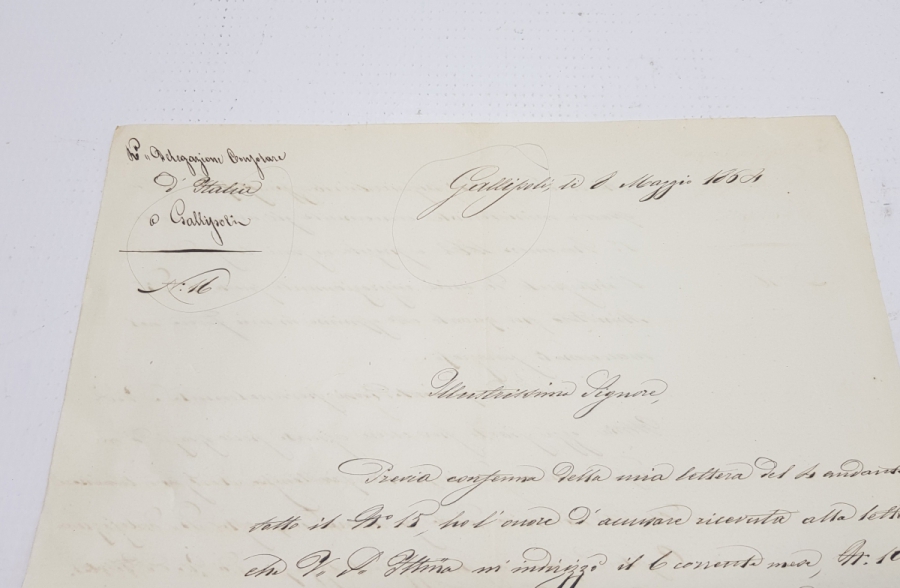 Ra. Delegazione Consolare
d'Italia
a Gallipoli
N.: 16
Gallipoli, li 8 Maggio 1864
Illustrissimo Signore,
Previa conferma della mia lettera del 4 andante
sotto il N.o 15, ho l'onore d'accusare ricevuta alla lett
che V. S. Illma m'indirizzò il 6 corrente mese, N. 10